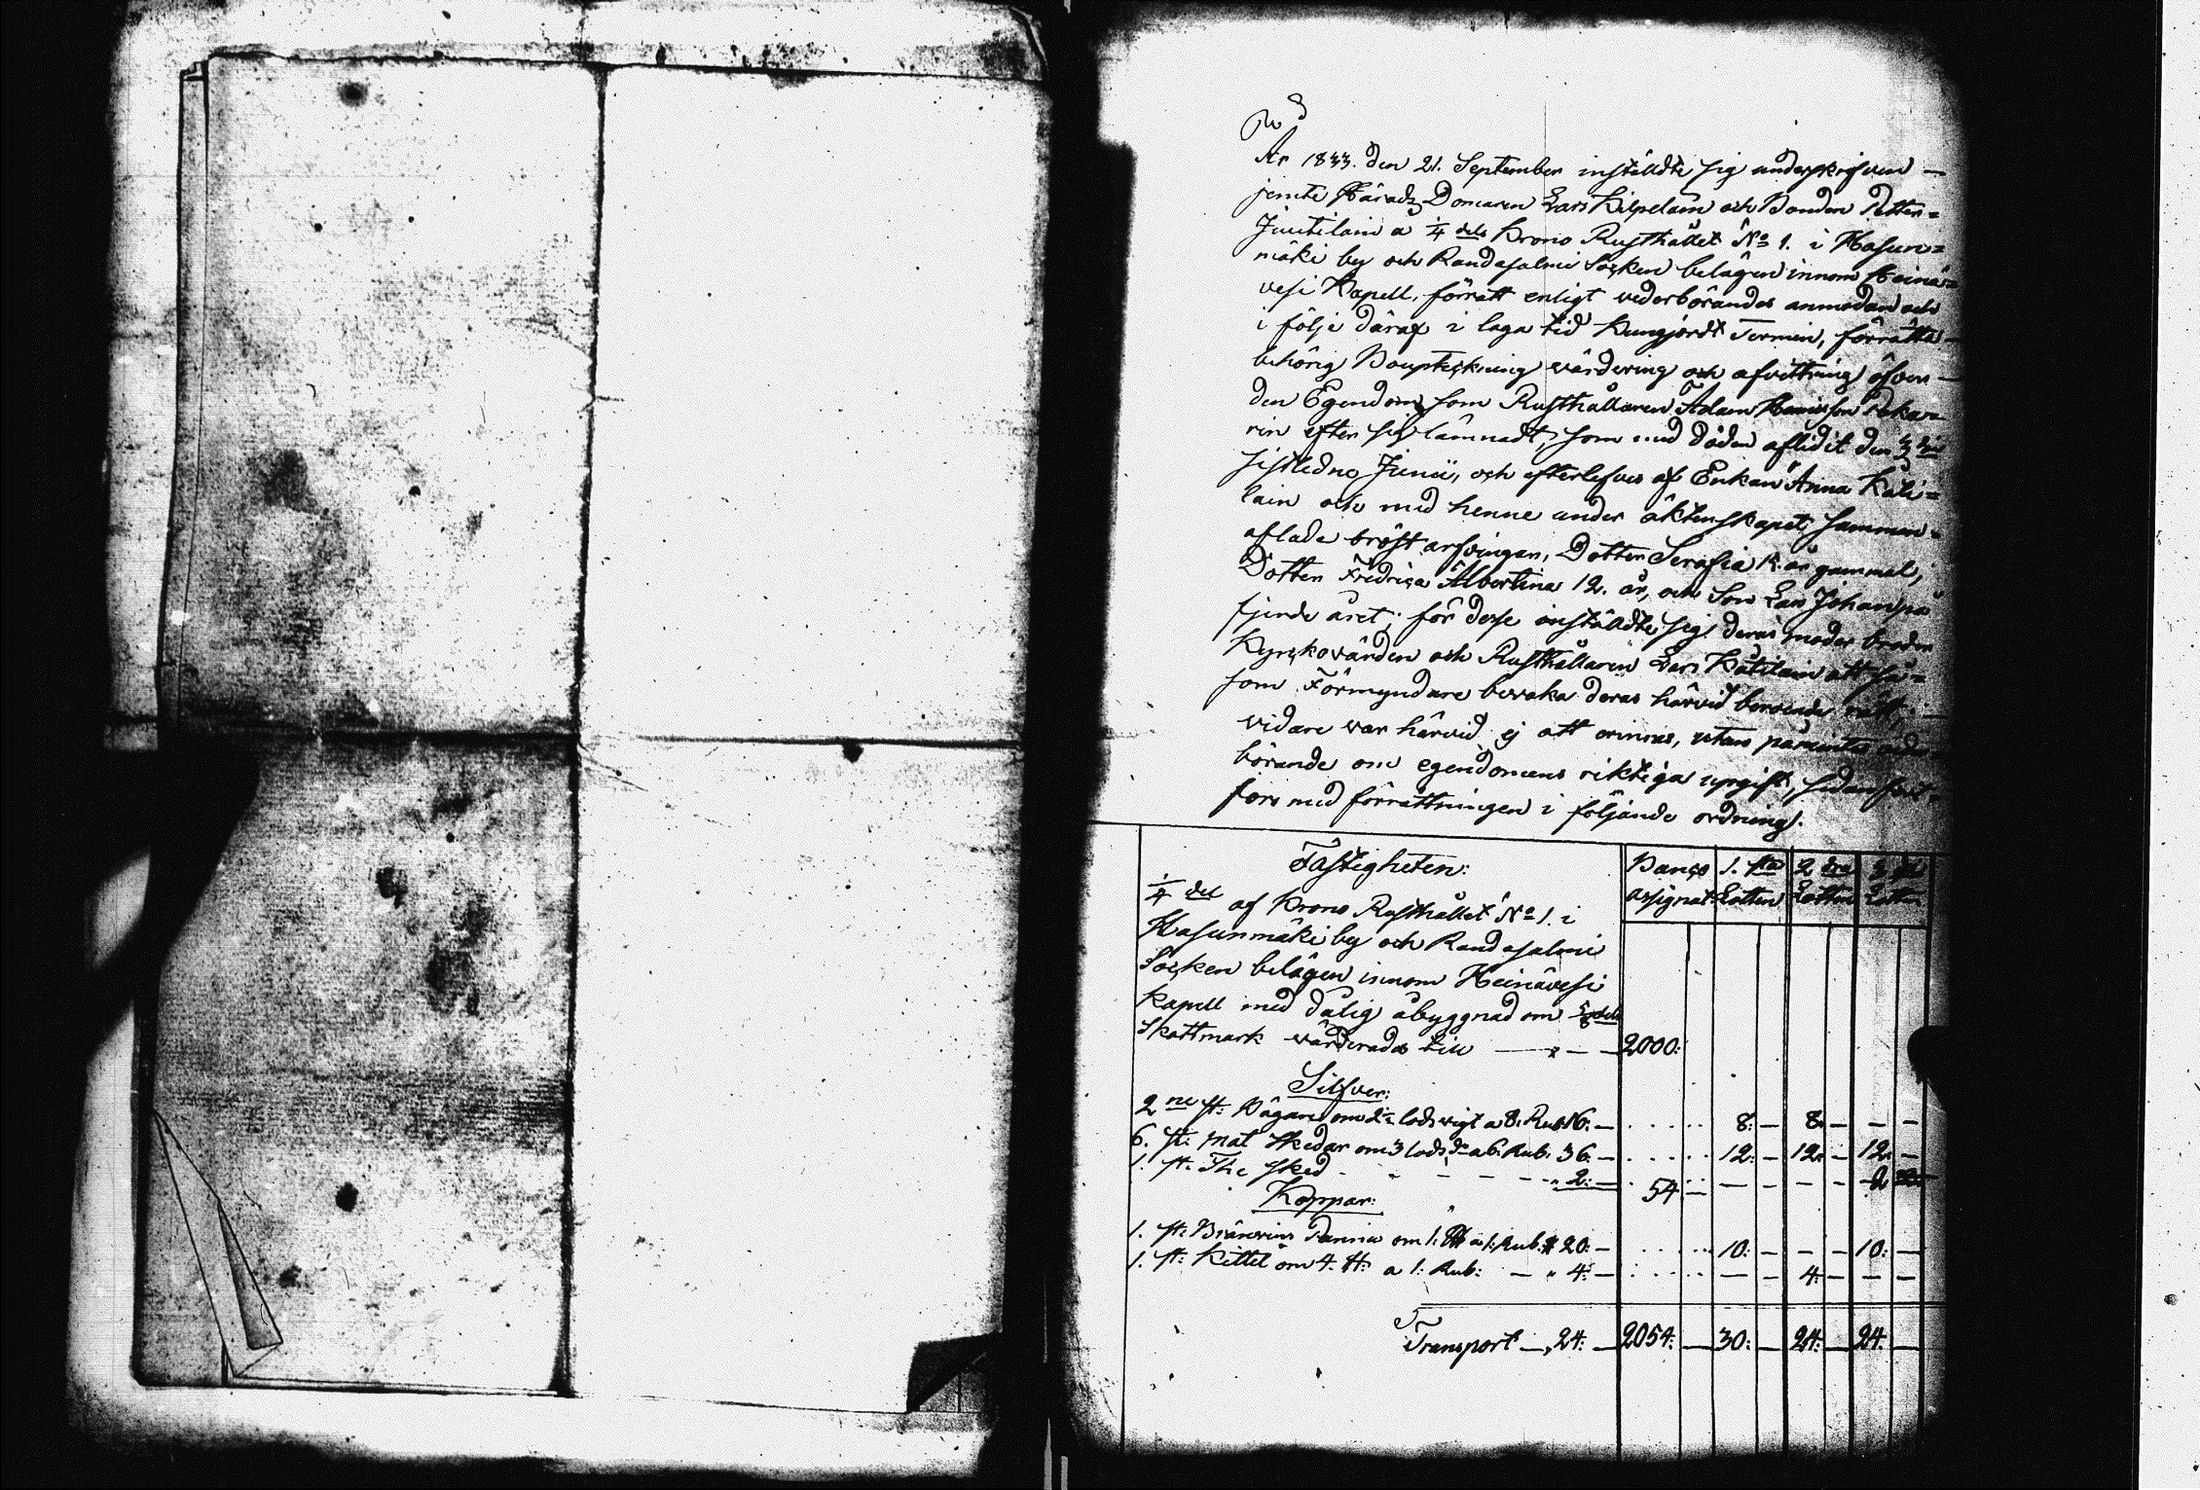 År 1833. den 21. September instäldte sig underskrifven
jemte Härads Domaren Lars Kilpelain och Bonden Petter
Juutilain a 1/4 dels Krono Rusthållet No 1. i Hasun=
mäki by och Randasalmi Socken belägen innom Heinä=
vesi Kapell, förrätt enligt vederbörandes anmodan och
i följe däraf i laga tid Kungjordt Termin, förrätta
behörig Boupteckning värdering och afvittring öfver
den Egendom som Rusthållaren Adam
ren efter sig lämnadt, som med döden aflidit den
sistledne Junii, och efterlefves af Enkan Anna Käti=
lain och med henne under äktenskapet samman=
aflade bröst arfvingar, Dotter Serafia år gammal,
Dotter Fredrica Albertina 12. år, och Son Lars Johan på
fjerde året; för desse instäldte sig deras moder broder
Kyrkovärden och Rusthållaren Lars Kätilain att så=
som Förmyndare bevaka deras härvid beroende rätt;
vidare var härvid ej att erinras, utan påmintes veder=
börande om egendomens riktiga uppgift, sedan fort=
fors med förrättningen i följande ordning.
Fastigheten: Banco 1. sta 2 dra 3 dje
assignat: Lotten Lotten Lotten
1/4 del af Krono Rusthållet No 1. i
Hasunmäki by och Randasalmi
Socken belägen innom Heinävesi
Kapell med dålig åbyggnad om
Skattmark värderades till — — 2000:
Silfver:
2 ne st: Bägare om 2 lods vigt a 8. Rub 16: — . . . . . 8: — 8: — — —
6. st: mat Skedar om 3 lods do a 6. Rub. 36: — . . . . . 12: — 12: — 12: —
1. st. The sked - - - - - „ 2: — 54 — — — — — 2
Koppar:
1. st: Bränvins Panna om 1. a 1. Rub. 20: — . . . . . 10: — — — 10: —
1. st: Kittel om 4. a 1: Rub: — „ 4: — . . . . . — — 4: — — —
Transport — „ 24: — 2054: — 30: — 24: — 24: —